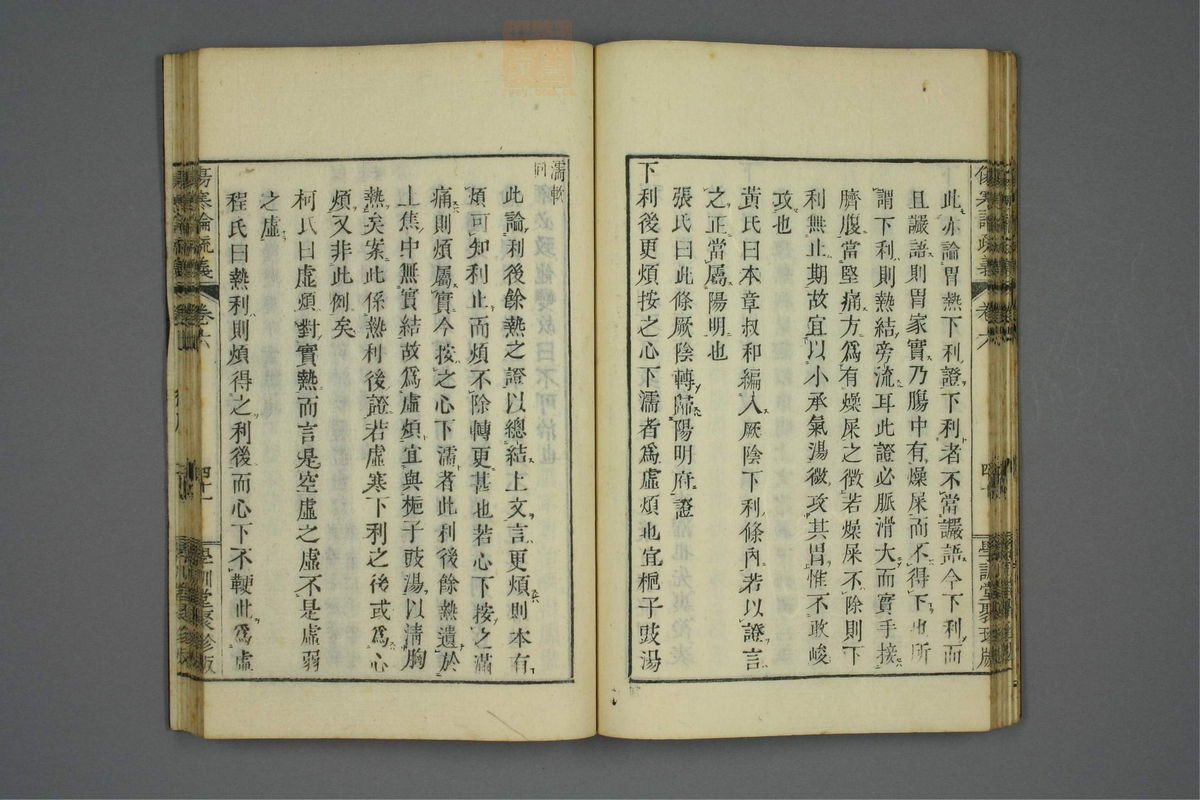 此亦論胃熱下利證下利者不當讝語今下利而
且讝語則胃家實乃腸中有燥屎而不得下也所
謂下利則熱結旁流耳此證必脈滑大而實手按
臍腹當堅痛方爲有燥屎之徴若燥屎不除則下
利無止期故宜以小承氣湯微攻其胃惟不敢峻
攻也
黃氏曰本章叔和編入厥陰下利條內若以證言
之正當屬陽明也
張氏曰此條厥陰轉歸陽明府證
下利後更煩按之心下濡者爲虛煩也宜梔子豉湯
濡軟
同
此論利後餘熱之證以總結上文言更煩則本有
煩可知利止而煩不除轉更甚也若心下按之滿
痛則煩屬實今按之心下濡者此利後餘熱遺於
上焦中無實結故爲虛煩宜與梔子豉湯以清胸
熱矣案此係熱利後證若虛寒下利之後或爲心
煩又非此例矣
柯氏曰虛煩對實熱而言是空虛之虛不是虛弱
之虛
程氏曰熱利則煩得之利後而心下不鞕此爲虛
傷寒論疏義
卷六
學訓堂聚珍版